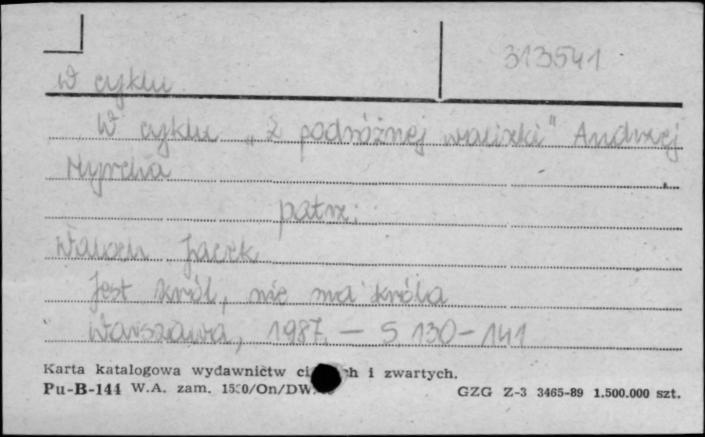 313541
W cyklu
W cyklu „Z podróżnej walizki" Andrzej
Myrcha
patrz:
Wałoch Jacek
Jest król, nie ma króla
Warszawa, 1987. — S 130-141
Karta katalogowa wydawnictw ci h i zwartych.
Pu-B-144 W.A. zam. /On/DW
GZG Z-3 3465-89 1.500.000 szt.